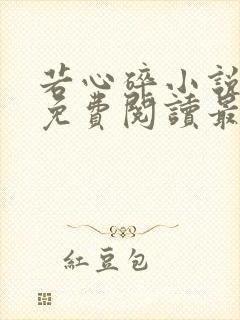 若心碎小說
免費閱讀最
紅豆包